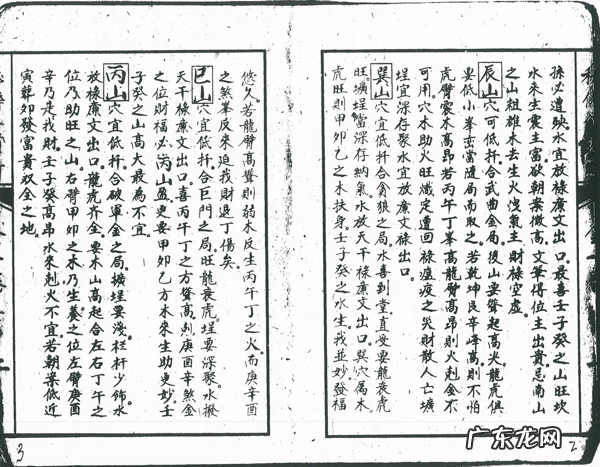 孫必遭殃水宜放祿廉文出口最喜壬子癸之山旺坎
水來生震主富欲朝案微高文筆得位主出貴忌南山
之山祖雄木去生火洩氣主財祿空虛
辰山穴可低扦合武曲金局後山要聳起高尖龍虎俱
要低小峯巒當隨局而取之若乾坤艮辛峰高則不怕
虎臂震木高昂若丙午丁峯高龍臂高昂則火剋金不
可用穴本助火旺熾定遭回祿瘟疫之災財散人亡壙
埕宜深存聚水宜放廉文祿出口
巽山穴宜低扦合貪狼之局水喜到堂直受要龍衰虎
旺壙埕當深存納氣水放天干祿廉文出口巽穴属木
虎旺則甲卯乙之木扶身壬子癸之水生我並妙發福
悠久若龍臂高聳則弱木反生丙午丁之火而庚辛酉
之煞峯反來廹我財退丁傷矣
巳山穴宜低扦合巨門之局旺龍衰虎埕要深聚水撥
天干祿廉文出口喜丙午丁之方聳高剋庚酉辛煞金
之位財福必丙山盈更要甲卯乙方木來生助更妙壬
子癸之山高大最為不宜
丙山穴宜低扦合破軍金之局壙埕要淺栏杆少飾水
放祿廉文出口龍虎齊全要木山高起合左右丁午之
位乃助旺之山右臂甲卯之木乃生養之位左臂庚酉
辛乃是我財壬子癸高昂水來剋火不宜若朝案低近
寅聳如發富貴双全之地
3
2
广东龙网